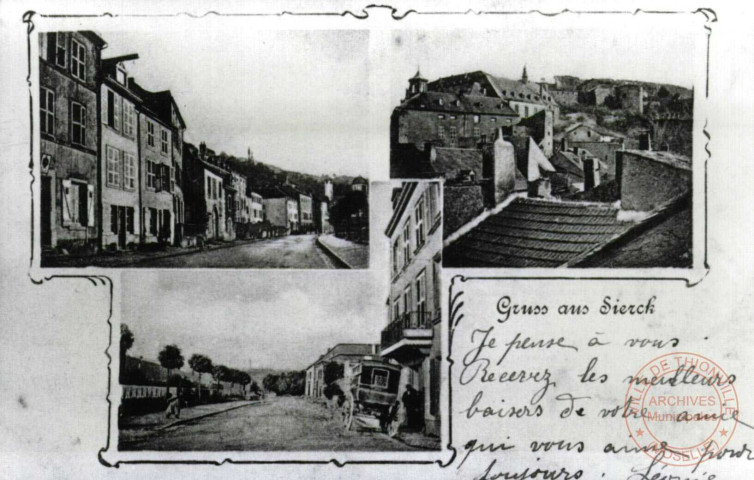 Gruss aus Sierck
Je pense à vous.
Recevez les meilleurs
baisers de votre amie
qui vous aime pour
toujours. Léonie
VILLE DE THIONVILLE
ARCHIVES
Municipales
MOSELLE